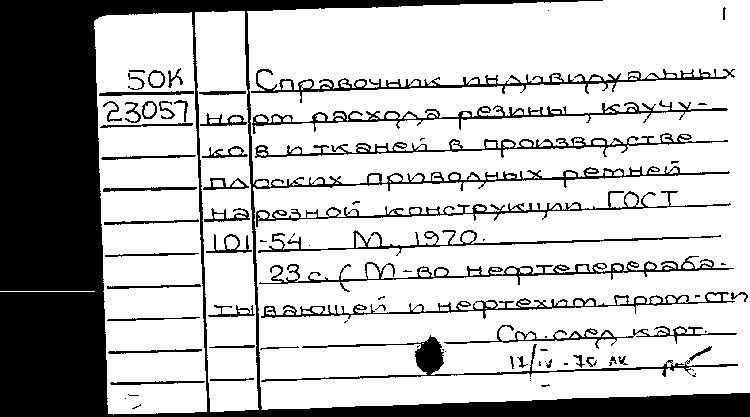 1
50К Справочник индивидуальных
23057 норм расхода резины, каучу-
ков и тканей в производстве
плоских приводных ремней
нарезной конструкции. ГОСТ
101-54. М., 1970.
23 с. (М-во нефтеперераба-
тывающей и нефтехим. пром-сти
См. след карт.